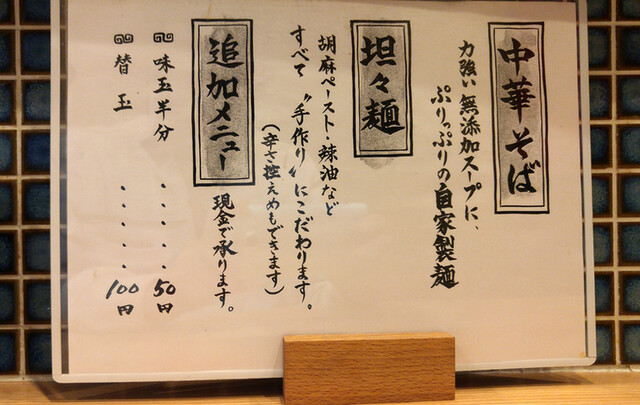 中華そば
力強い無添加スープに、
ぷりっぷりの自家製麺
坦々麺
胡麻ペースト・辣油など
すべて〝手作り〟にこだわります。
(辛さ控えめもできます)
追加メニュー
現金で承ります。
味玉半分・・・・・50円
替玉・・・・・100円